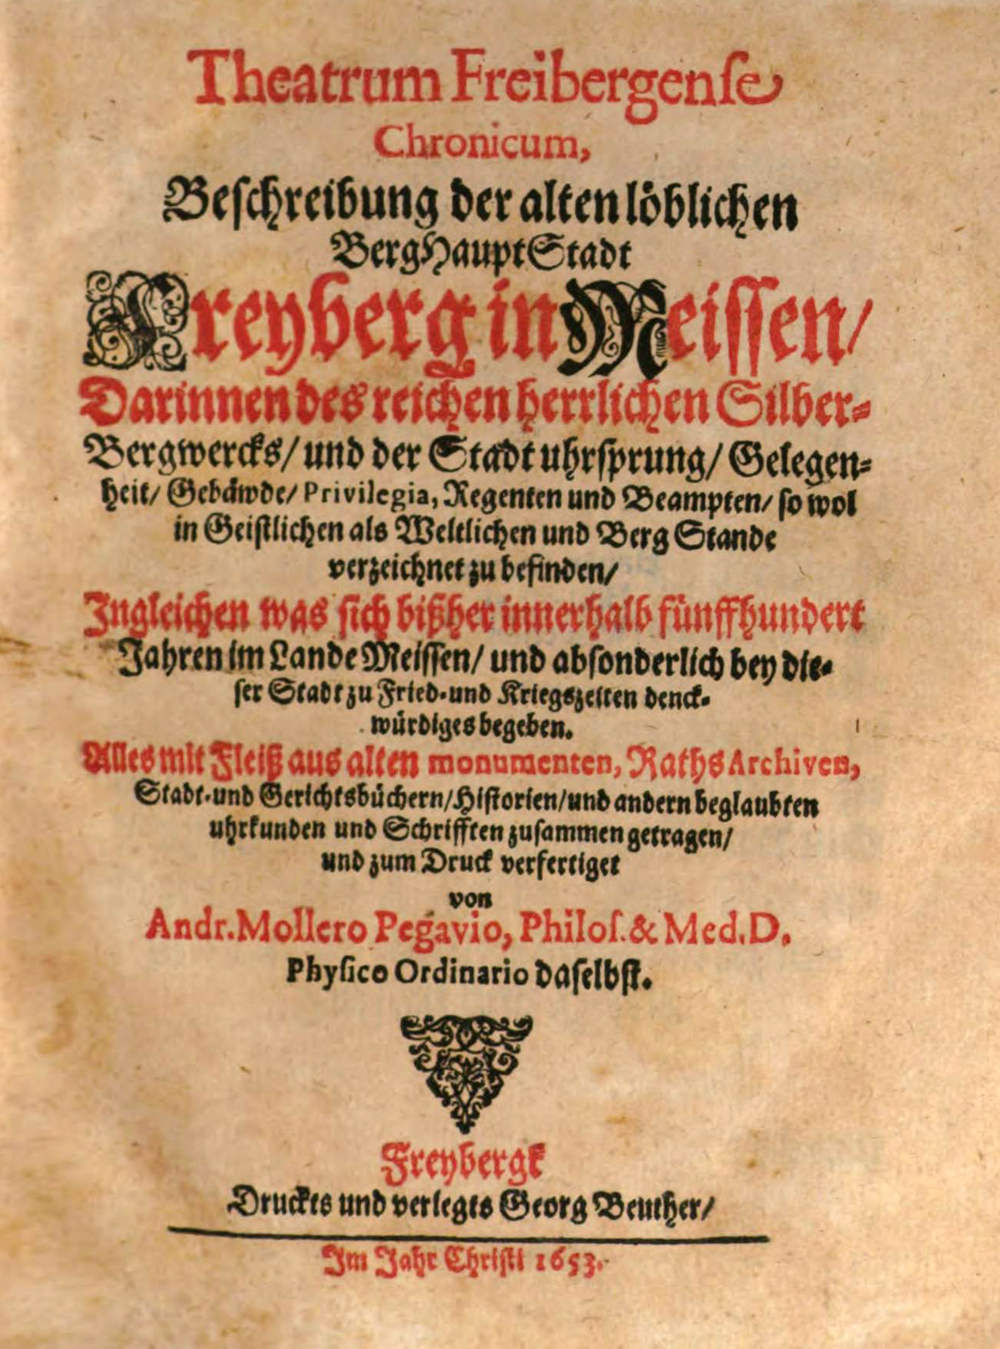 Theatrum Freibergense
Chronicum,
Beschreibung der alten löblichen
BergHauptStadt
Freyberg in Meissen/
Darinnen des reichen herrlichen Silber-
Bergwercks/ und der Stadt uhrsprung/ Gelegen-
heit/ Gebäwde/ Privilegia, Regenten und Beampten/ so wol
in Geistlichen als Weltlichen und Berg Stande
verzeichnet zu befinden/
Ingleichen was sich bißher innerhalb fünffhundert
Jahren im Lande Meissen/ und absonderlich bey die-
ser Stadt zu Fried- und Kriegszeiten denck-
würdiges begeben.
Alles mit Fleiß aus alten monumenten, Raths Archiven,
Stadt- und Gerichtsbüchern/ Historien/ und andern beglaubten
uhrkunden und Schrifften zusammen getragen/
und zum Druck verfertiget
von
Andr. Mollero Pegavio, Philos. & Med. D.
Physico Ordinario daselbst.
Freybergk
Druckts und verlegts Georg Beuther/
Im Jahr Christi 1653.